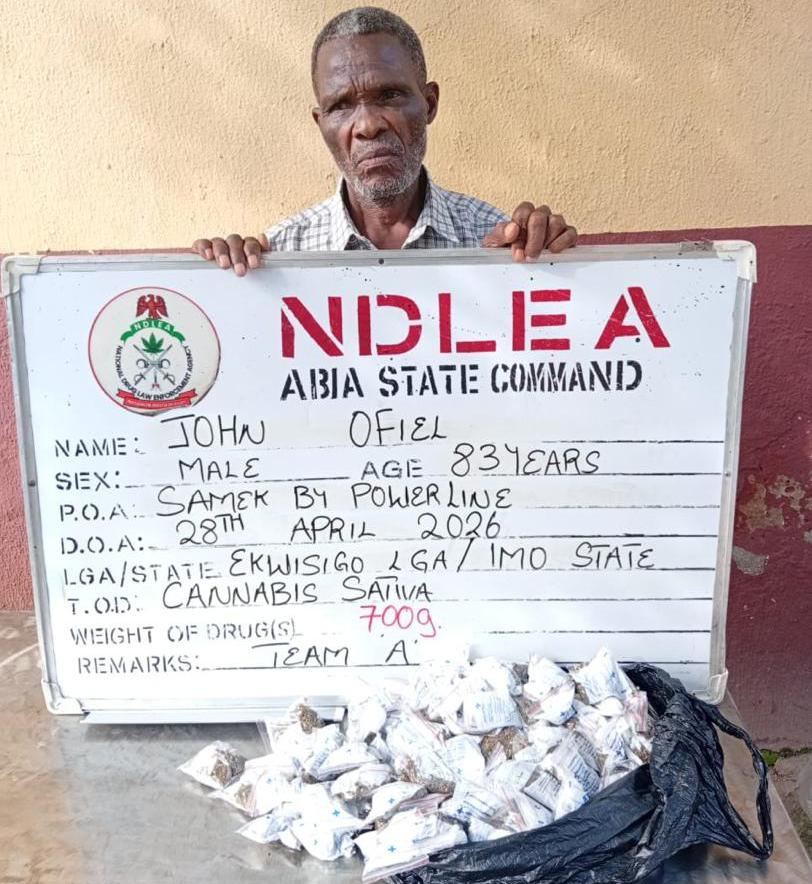 NDLEA
ABIA STATE COMMAND
NDLEA
NATIONAL DRUG LAW ENFORCEMENT AGENCY
NAME: JOHN OFIEL
SEX: MALE AGE 83 YEARS
P.O.A: SAMEK BY POWERLINE
D.O.A: 28TH APRIL 2026
LGA/STATE EKWISIGO LGA/ IMO STATE
T.O.D: CANNABIS SATIVA
WEIGHT OF DRUG(S) 700g.
REMARKS: TEAM 'A'